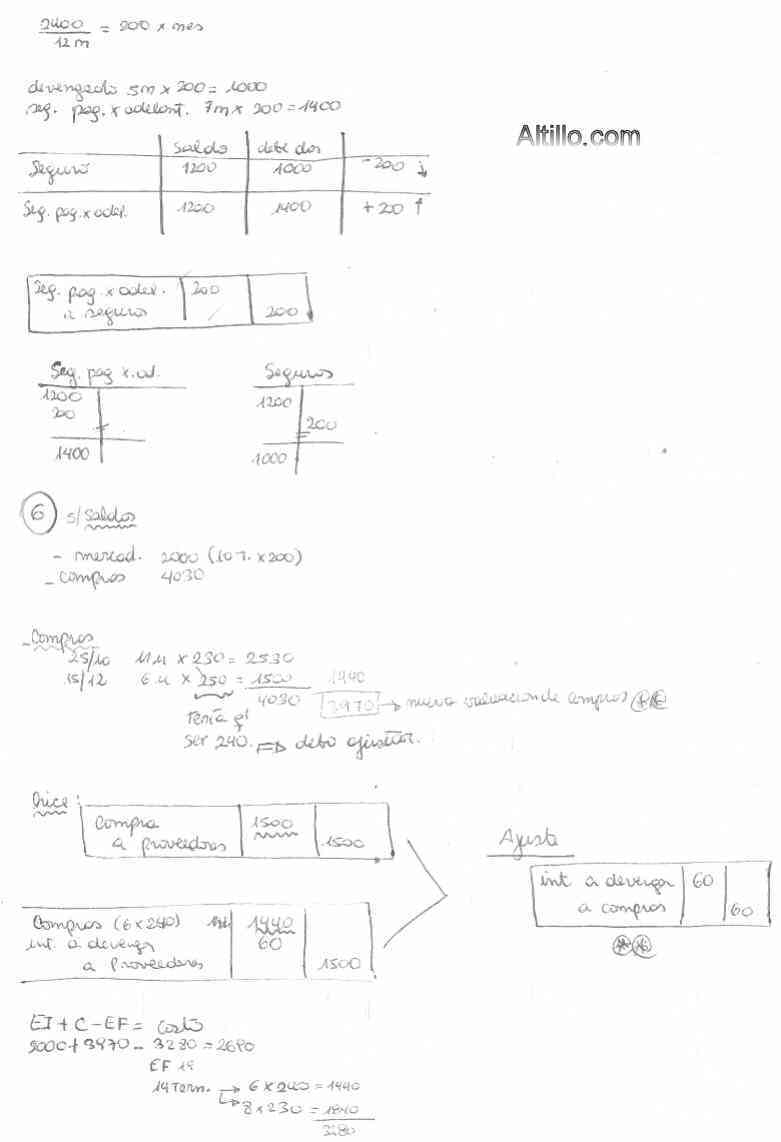 2400 / 12 m = 200 x mes
devengado 5m x 200 = 1000
seg. pag. x adelant. 7m x 200 = 1400
Altillo.com
saldo debe dos
Seguro 1200 1000 -200 ↓
Seg. pag. x adel. 1200 1400 +200 ↑
Seg. pag. x adel. 200
a seguros 200
Seg. pag x. ad. Seguros
1200 1200
200 200
1400 1000
6 s/ saldos
- mercad. 2000 (10 T. x 200)
- compras 4030
- Compras
25/10 11 u x 230 = 2530
15/12 6 u x 250 = 1500 1440
4030 3970 → nueva valuacion de compras
Tenía q'
ser 240. ⇒ debo ajustar.
hice:
compra 1500
a proveedores 1500
Ajuste
int a devengar 60
a compras 60
Compras (6 x 240) 1440
int. a devengar 60
a Proveedores 1500
EI + C - EF = costo
2000 + 3970 - 3280 = 2690
EF 14
14 Term. → 6 x 240 = 1440
↳ 8 x 230 = 1840
3280